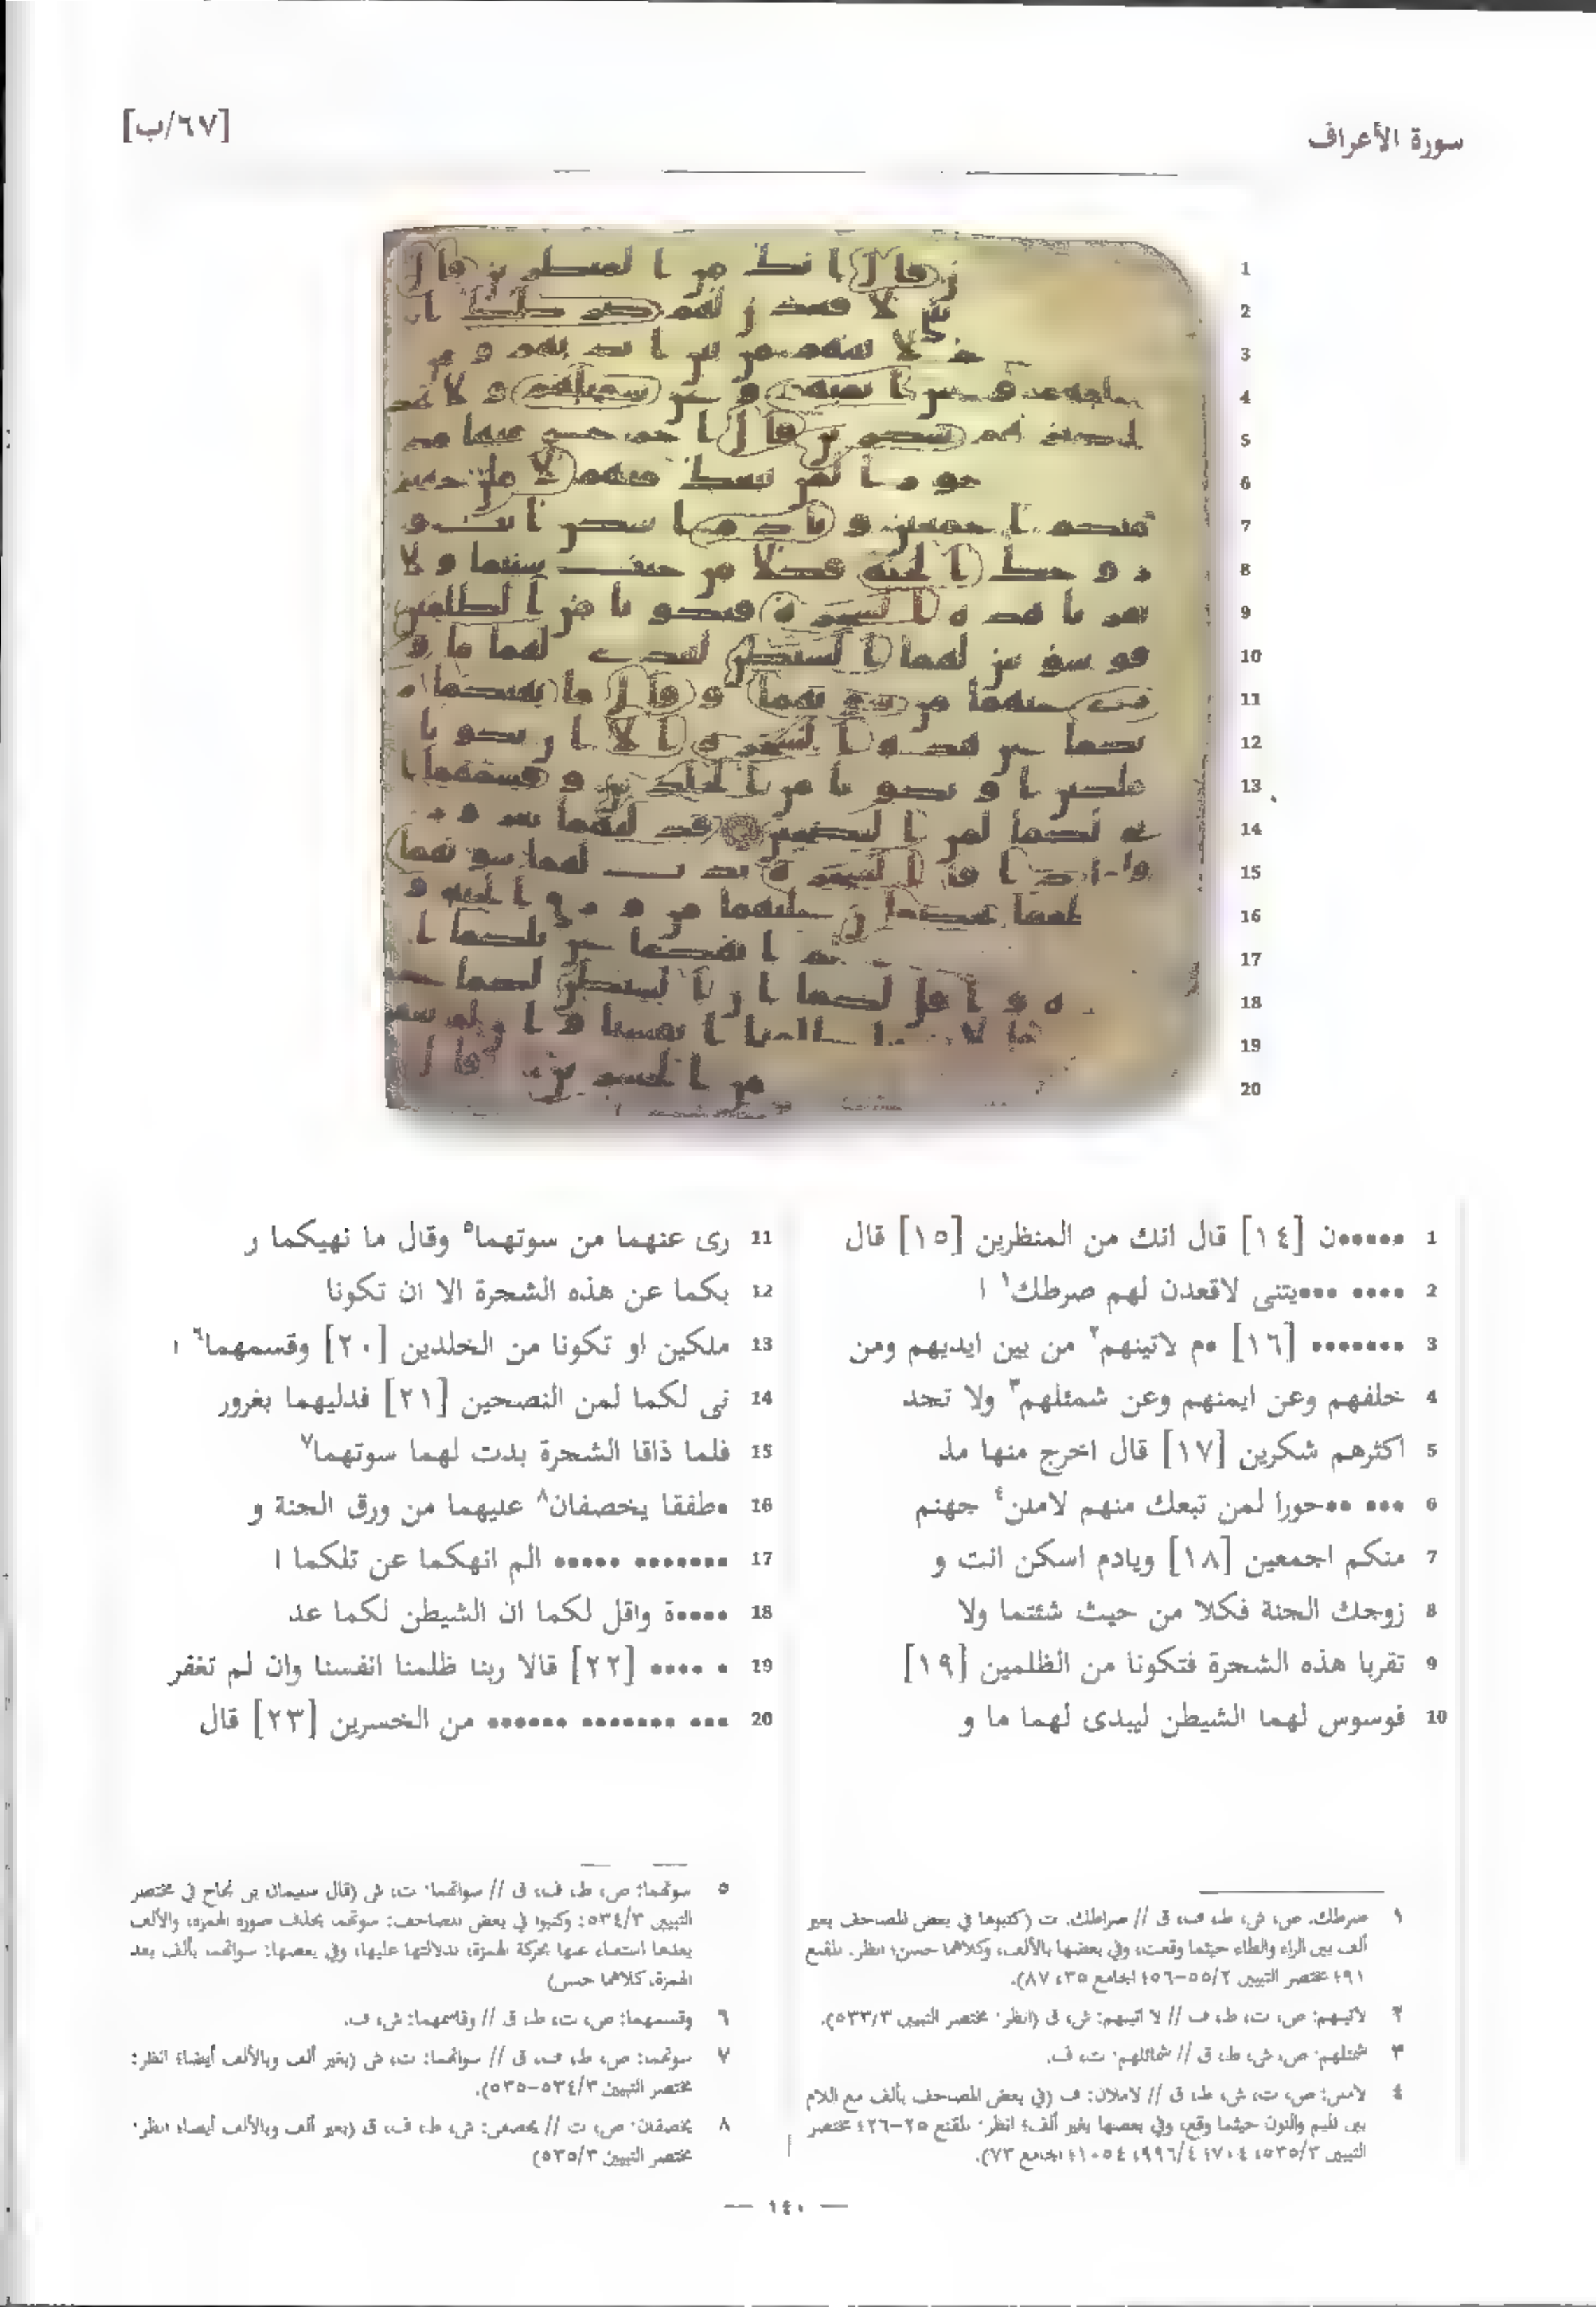 سورة الأعراف
[٦٧/ب]
1 •••••ن [١٤] قال انك من المنظرين [١٥] قال
2 •••• •••يتنى لاقعدن لهم صرطك١ ا
3 ••••••• [١٦] •م لاتينهم٢ من بين ايديهم ومن
4 خلفهم وعن ايمنهم وعن شمئلهم٣ ولا تجد
5 اكثرهم شكرين [١٧] قال اخرج منها مذ
6 ••• ••حورا لمن تبعك منهم لاملن٤ جهنم
7 منكم اجمعين [١٨] ويادم اسكن انت و
8 زوجك الجنة فكلا من حيث شئتما ولا
9 تقربا هذه الشجرة فتكونا من الظلمين [١٩]
10 فوسوس لهما الشيطن ليبدى لهما ما و
11 رى عنهما من سوتهما٥ وقال ما نهيكما ر
12 بكما عن هذه الشجرة الا ان تكونا
13 ملكين او تكونا من الخلدين [٢٠] وقسمهما٦ ا
14 نى لكما لمن النصحين [٢١] فدليهما بغرور
15 فلما ذاقا الشجرة بدت لهما سوتهما٧
16 •طفقا يخصفان٨ عليهما من ورق الجنة و
17 ••••••• ••••• الم انهكما عن تلكما ا
18 •••••ة واقل لكما ان الشيطن لكما عد
19 • •••• [٢٢] قالا ربنا ظلمنا انفسنا وان لم تغفر
20 ••• ••••••• •••••• من الخسرين [٢٣] قال
١ صرطك: ص، ش، ط، ف، ق // صراطك: ت (كتبوها في بعض المصاحف بغير
ألف بين الراء والطاء حيثما وقعت، وفي بعضها بالألف، وكلاهما حسن؛ انظر: المقنع
٩١؛ مختصر التبيين ٥٥/٢-٥٦؛ الجامع ٣٥، ٨٧).
٢ لاتينهم: ص، ت، ط، ف // لا اتينهم: ش، ق (انظر: مختصر التبيين ٥٣٣/٣).
٣ شمئلهم: ص، ش، ط، ق // شمائلهم: ت، ف.
٤ لاملن: ص، ت، ش، ط، ق // لاملان: ف (في بعض المصاحف بألف مع اللام
بين الميم والنون حيثما وقع، وفي بعضها بغير ألف؛ انظر: المقنع ٢٥-٢٦؛ مختصر
التبيين ٥٣٥/٣؛ ٧٠٤؛ ٩٩٦/٤، ١٠٥٤؛ الجامع ٧٣).
٥ سوتهما: ص، ط، ف، ق // سواتهما: ت، ش (قال سليمان بن نجاح في مختصر
التبيين ٥٣٤/٣: وكتبوا في بعض المصاحف: سوتهما بحذف صورة الهمزة، والألف
بعدها استغناء عنها بحركة الهمزة، لدلالتها عليها، وفي بعضها: سواتهما بألف بعد
الهمزة، كلاهما حسن)
٦ وقسمهما: ص، ت، ط، ق // وقاسمهما: ش، ف.
٧ سوتهما: ص، ط، ف، ق // سواتهما: ت، ش (بغير ألف وبالألف أيضا؛ انظر:
مختصر التبيين ٥٣٤/٣-٥٣٥).
٨ يخصفان: ص، ت // يخصفن: ش، ط، ف، ق (بغير ألف وبالألف أيضا؛ انظر:
مختصر التبيين ٥٣٥/٣)
— ١٤٠ —